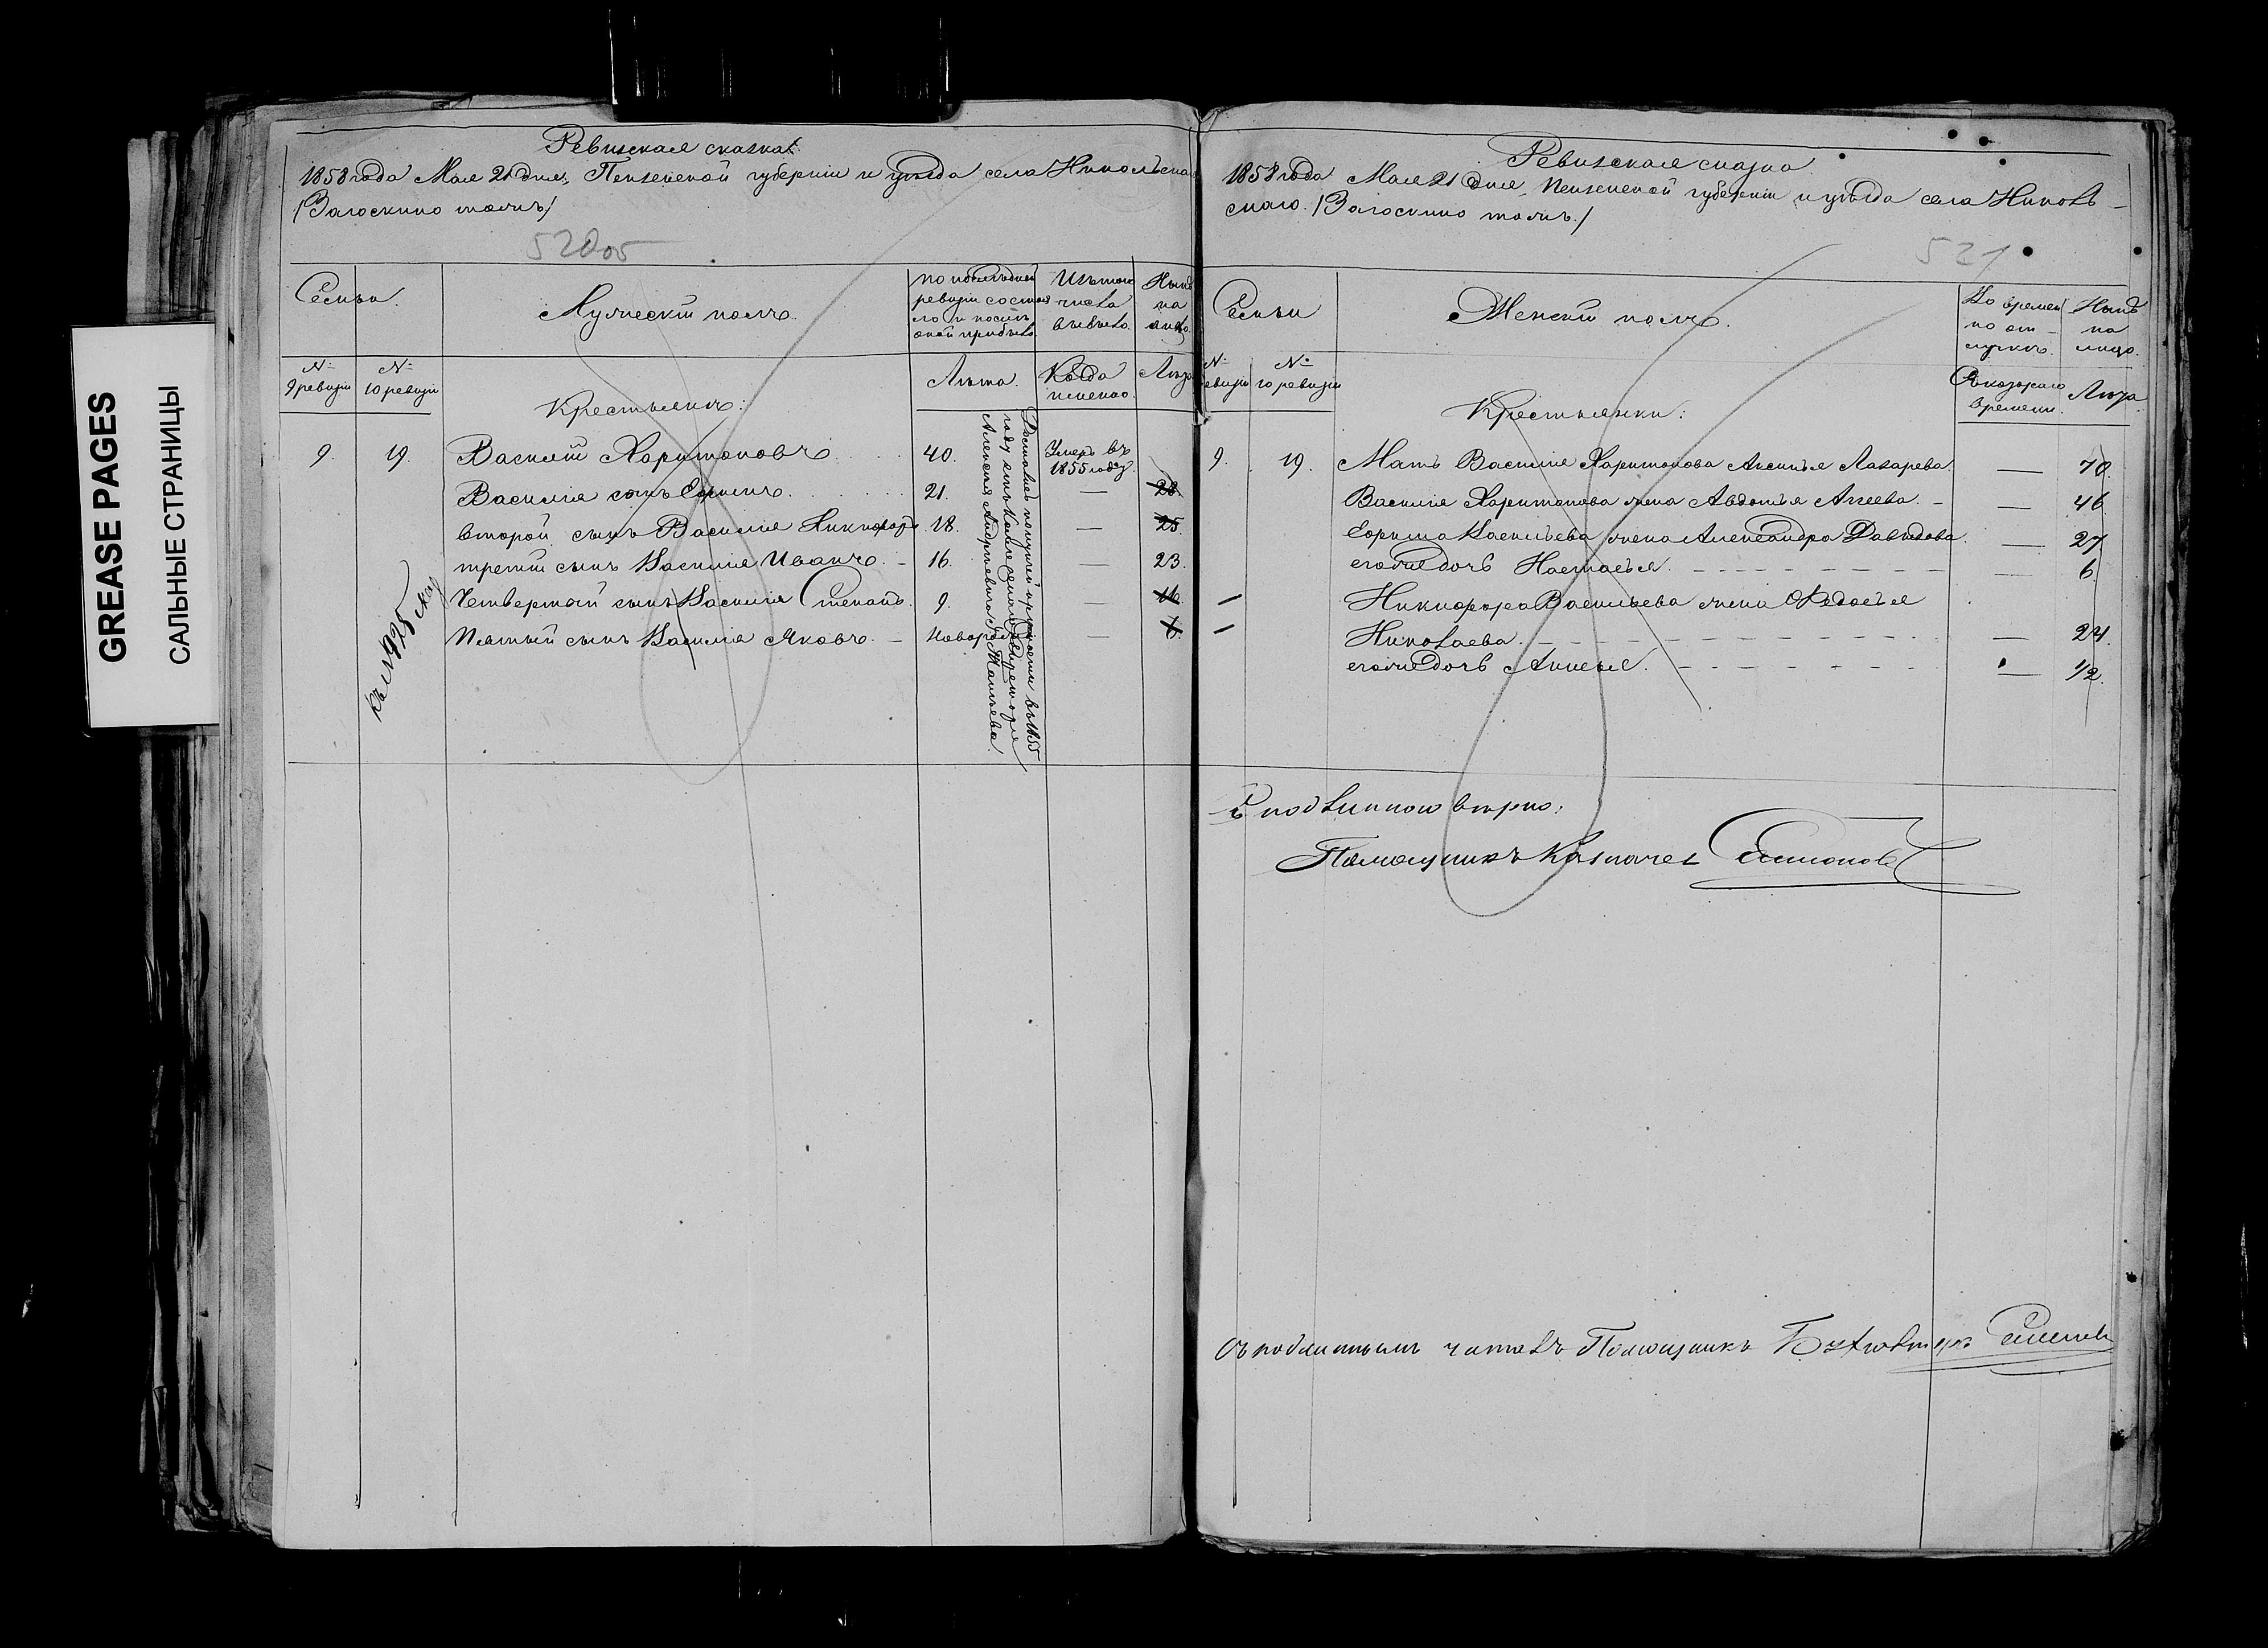 GREASE PAGES
САЛЬНЫЕ СТРАНИЦЫ
Ревизская сказка
1858 года Мая 21 дня, Пензенской губернiи и уѣзда села Никольска
/Загоскино тожъ/
520 об
Семьи.
Мужескiй полъ
по последней
ревизiи состоя
ло и послѣ
оной прибыло
Изъ того
числа
выбыло.
Нынѣ
на
лицо.
№
9 ревизiи
№
10 ревизiи
Крестьянъ:
Лѣта.
Когда
именно.
Лѣта
9.
19.
Василiй Харитоновъ
40.
Умеръ въ
1855 году
Василiя сынъ Ефимъ
21.
—
28.
второй сынъ Василiя Никифоръ
18.
—
25.
третiй сынъ Василiя Иванъ. –
16.
—
23.
Четвертый сынъ Василiя Степанъ.
9.
—
16.
Пятый сынъ Василiя Яковъ. –
—
6.
Достались по купчей крѣпости въ 1855
году отъ
Алексея Андреевича
Ревизская сказка
1858 года Мая 21 дня, Пензенской губернiи и уѣзда села Николь–
скаго. /Загоскино тожъ./
521
Семьи
Женскiй полъ.
Во времен
но от–
лучкѣ.
Нынѣ
на
лицо.
№
ревизiи
№
10 ревизiи
Крестьянки:
Съ котораго
времени.
Лѣта.
9.
19.
Мать Василiя Харитонова Аксинья Лазарева.
—
70.
Василiя Харитонова жена Авдотья Агеева. –
—
46
Ефима Васильева жена Александра Давыдова.
—
27
его же дочь Настасья.
—
6.
Никифора Васильева жена Федосья
Николаева.
—
24.
его же дочь
—
1/2.
Съ подлинною вѣрно:
Помощникъ Казначея
Съ подлиннымъ читалъ Помощникъ Бухгалтера